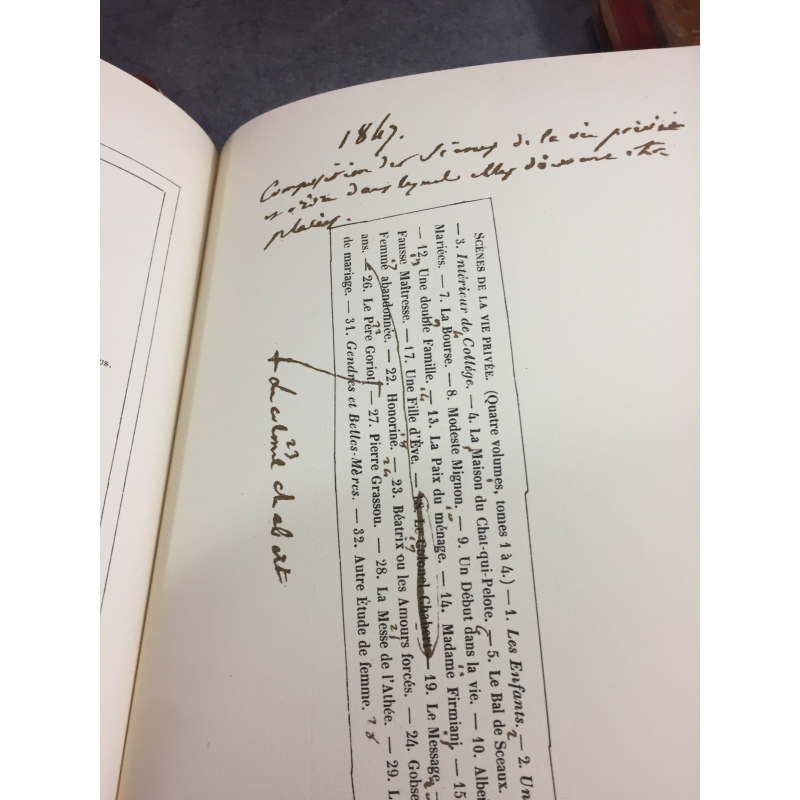 1847.
Composition des Scènes de la vie privée
et ordre dans lequel elles doivent être
placées.
SCÈNES DE LA VIE PRIVÉE. (Quatre volumes, tomes 1 à 4.) — 1. Les Enfants. — 2. Un
— 3. Intérieur de Collège. — 4. La Maison du Chat-qui-Pelote. — 5. Le Bal de Sceaux.
Mariées. — 7. La Bourse. — 8. Modeste Mignon. — 9. Un Début dans la vie. — 10. Alber
— 12. Une double Famille. — 13. La Paix du ménage. — 14. Madame Firmiani. — 15
Fausse Maîtresse. — 17. Une Fille d'Ève. — 18. Le Colonel Chabert. — 19. Le Message.
Femme abandonnée. — 22. Honorine. — 23. Béatrix ou les Amours forcés. — 24. Gobse
ans. — 26. Le Père Goriot. — 27. Pierre Grassou. — 28. La Messe de l'Athée. — 29. L
de mariage. — 31. Gendres et Belles-Mères. — 32. Autre Étude de femme.
+ Le colonel chabert
23
us.